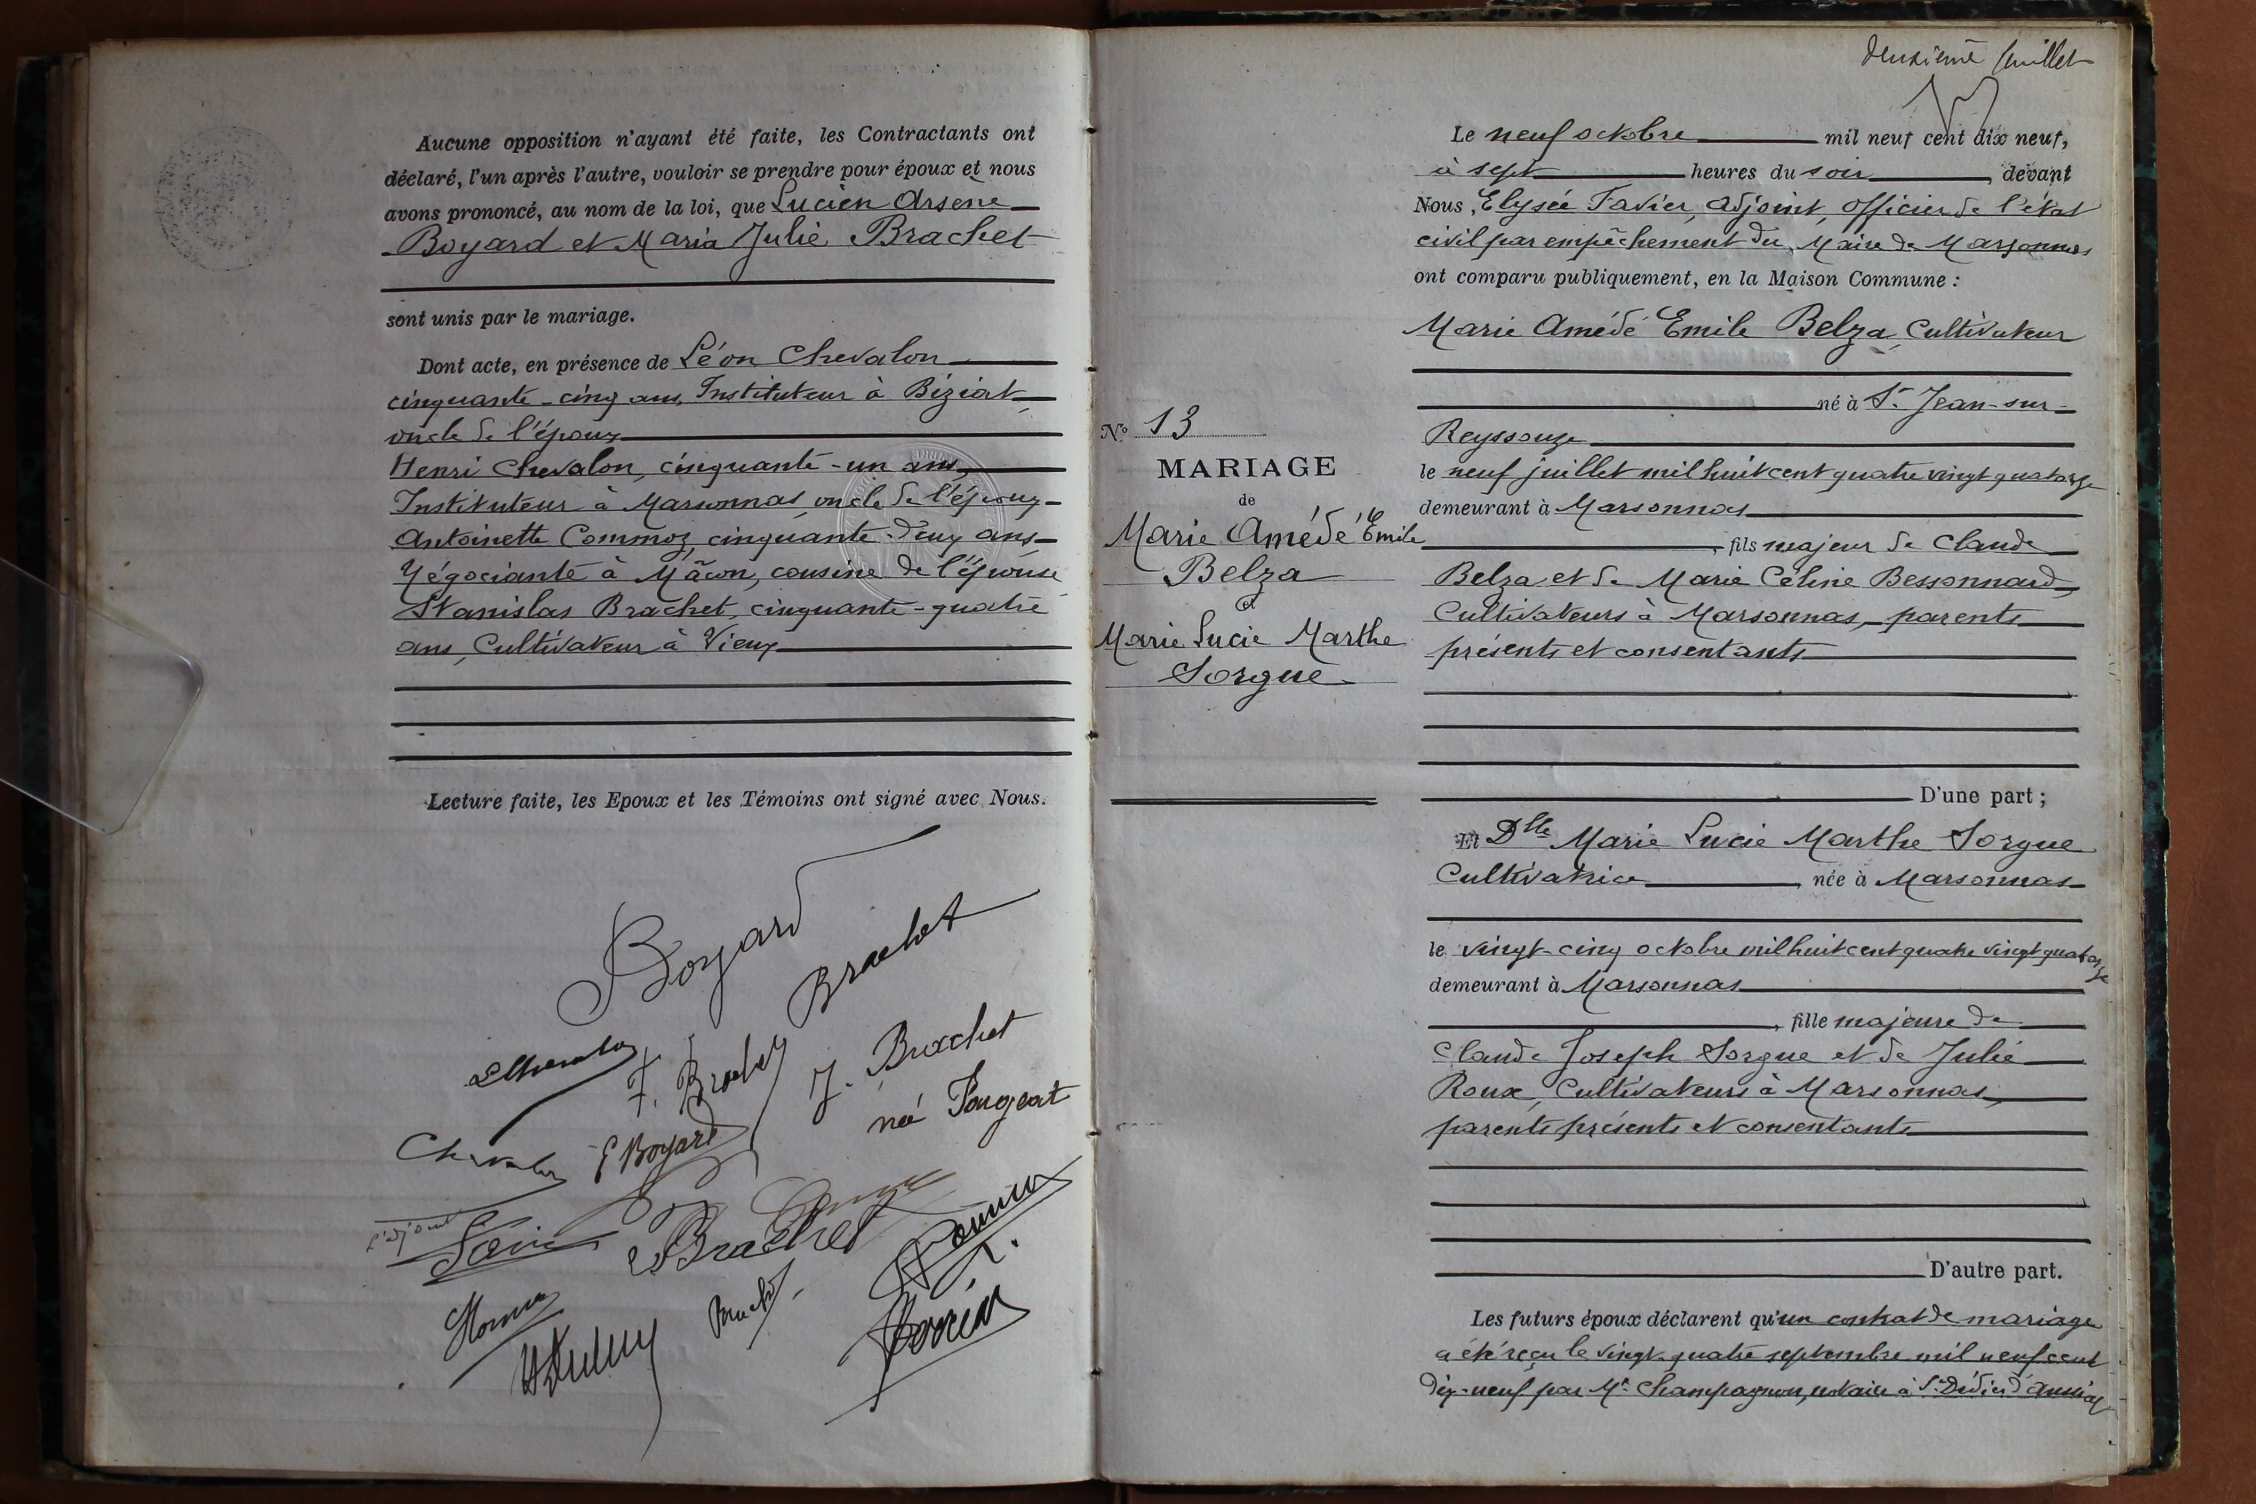 Aucune opposition n'ayant été faite, les Contractants ont
déclaré, l'un après l'autre, vouloir se prendre pour époux et nous
avons prononcé, au nom de la loi, que Lucien Arsène
Boyard et Maria Julie Brachet
sont unis par le mariage.
Dont acte, en présence de Léon Chevalon
cinquante-cinq ans, Instituteur à Biziat
oncle de l'époux
Henri Chevalon, cinquante-un ans,
Instituteur à Marsonnas, oncle de l'époux
Antoinette Commoz, cinquante-deux ans
Négociante à Mâcon, cousine de l'épouse
Stanislas Brachet, cinquante-quatre
ans, Cultivateur à Vieux
Lecture faite, les Epoux et les Témoins ont signé avec Nous.
Boyard
Brachet
LChevalon
F. Brachet
J. Brachet
née Pougeat
Chevalon
E Boyard
l'adjoint
Brachet
Brachet
deuxième feuillet
Le neuf octobre mil neuf cent dix neuf,
à sept heures du soir, devant
Nous, Elysée Favier, adjoint, officier de l'état
civil par empêchement du Maire de Marsonnas
ont comparu publiquement, en la Maison Commune :
Marie Amédé Emile Belza, Cultivateur
né à St Jean-sur-
Reyssouze
le neuf juillet mil huit cent quatre vingt quatorze
demeurant à Marsonnas
, fils majeur de Claude
Belza et de Marie Céline Bessonnard,
Cultivateurs à Marsonnas, parents
présents et consentants
D'une part ;
No 13
MARIAGE
de
Marie Amédé Emile
Belza
et
Marie Lucie Marthe
Sorgue
Et Dlle Marie Lucie Marthe Sorgue
Cultivatrice, née à Marsonnas
le vingt-cinq octobre mil huit cent quatre vingt quatorze
demeurant à Marsonnas
, fille majeure de
Claude Joseph Sorgue et de Julie
Roux, Cultivateurs à Marsonnas,
parents présents et consentants
D'autre part.
Les futurs époux déclarent qu'un contrat de mariage
a été reçu le vingt-quatre septembre mil neuf cent
dix-neuf par Me Champagnon, notaire à St Didier d'Aussiat